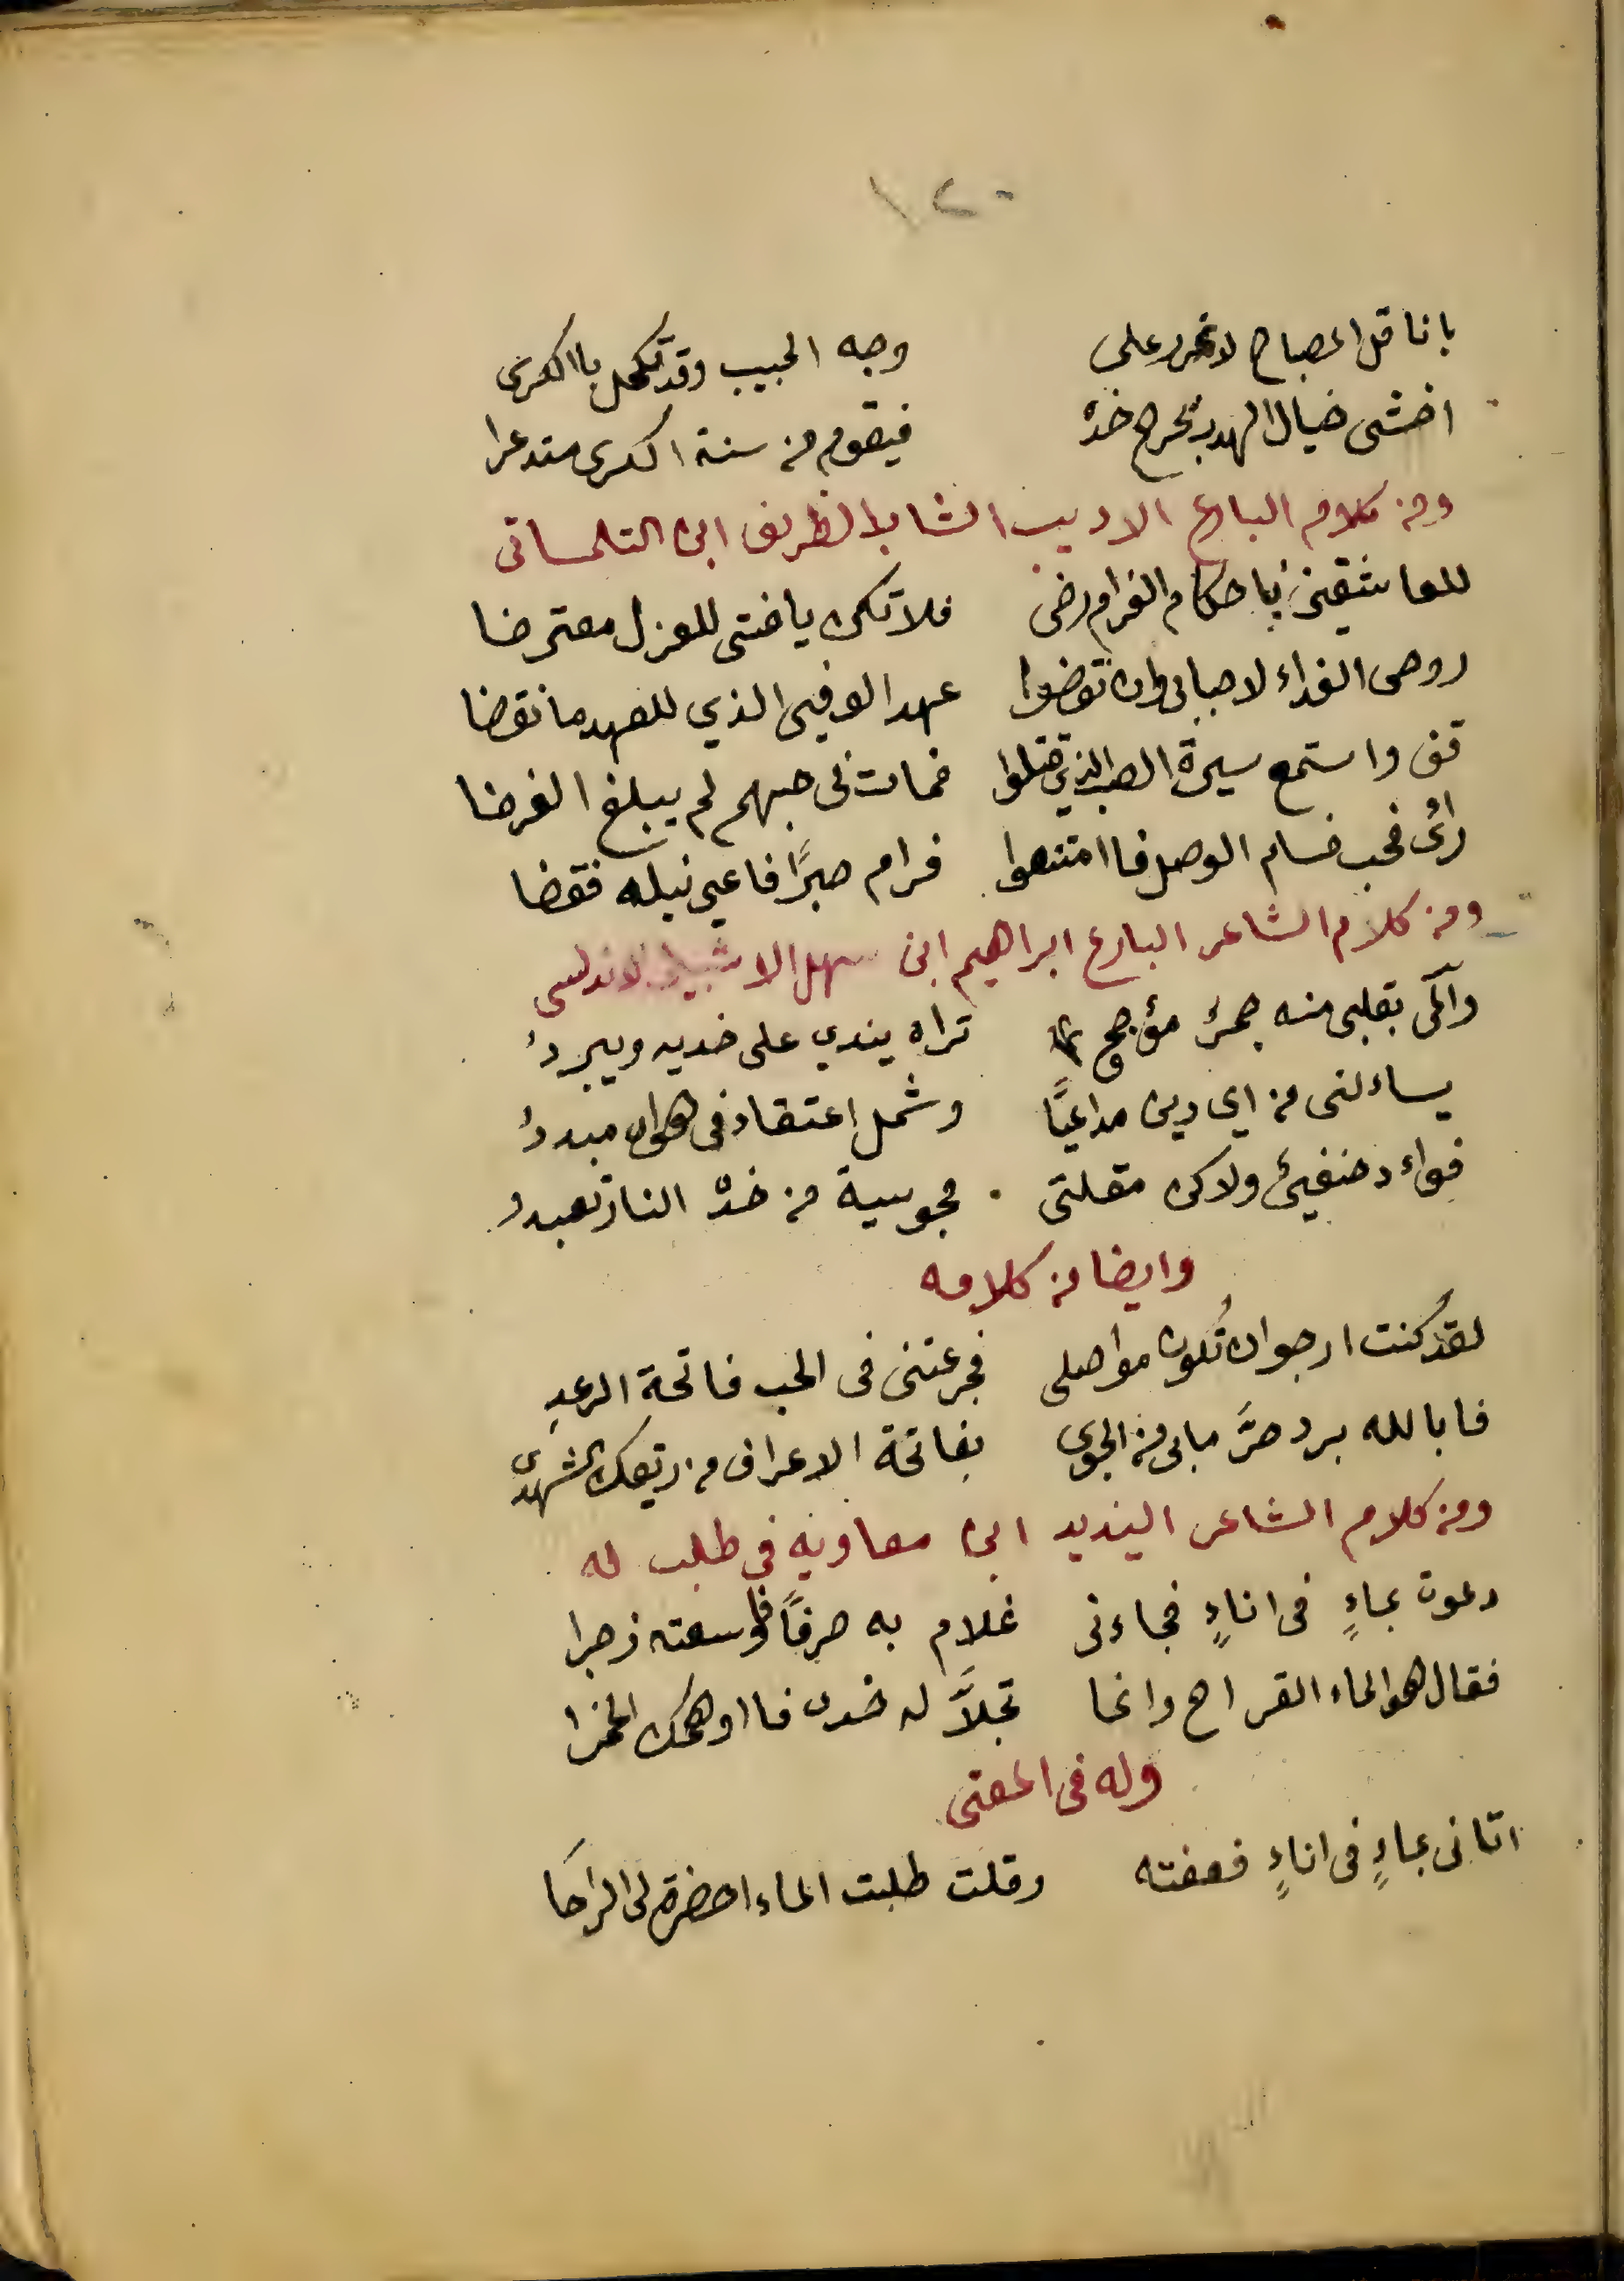 ١٢٠
يا ناقل المصباح لا تمرر على وجه الحبيب وقد تكحل بالكرى
اخشى خيال الهدب تجرح خده فيقوم من سنة الكرى متذعرا
ومن كلام البارع الاديب الشاب الظريف ابن التلمساني
للعاشقين باحكام الغرام رضى فلا تكن يا فتى للعزل معترضا
روحى الفداء لاحبابى وان نقضوا عهد الوفيى الذي للعهد ما نقضا
قف واستمع سيرة الصب الذي قتلوا فمات فى حبهم لم يبلغ الغرضا
رائ فحب فسام الوصل فاامتنعوا فرام صبرًا فاعيى نيله فقضا
ومن كلام الشاعر البارع ابراهيم ابن سهل الاشبيلى الاندلسى
وآلمى بقلبى منه جمرٌ مؤجج تراه يندي على خديه ويبردُ
يساءلنى من اي دين مداعبًا وشمل اعتقادى فى هواه مبددُ
فواءد حنفيئ ولاكن مقلتى مجوسية من خده النار تعبدُ
وايضا من كلامه
لقد كنت ارجوا ان تكون مواصلى فجرعتنى فى الحب فاتحة الرعدِ
فابالله برد حرَّ مابى من الجوى بفاتحة الاعراف من ريقك الشهدى
ومن كلام الشاعر اليذيد ابن معاويه فى طلب له
دعوت بماءٍ فى اناءٍ فجاءنى غلام به صرفًا فاوسعته زجرا
فقال هو الماء القراح وانما تجلاَّ له خدى فااوهمك الخمرا
وله فى المعنى
اتانى بماءٍ فى اناءٍ فعفته وقلت طلبت الماء احضرة لى الراحا